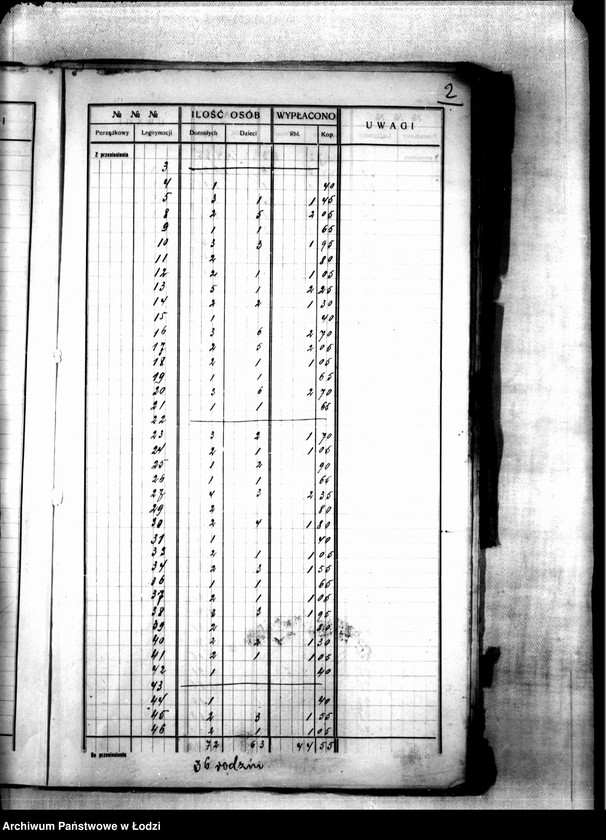 2
№ № № ILOŚĆ OSÓB WYPŁACONO UWAGI
Porządkowy Legitymacji Dorosłych Dzieci Rbl. Kop.
Z przeniesienia
3
4 1 40
5 3 1 1 45
8 2 5 2 05
9 1 1 65
10 3 3 1 95
11 2 80
12 2 1 1 05
13 5 1 2 25
14 2 2 1 30
15 1 40
16 3 6 2 70
17 2 5 2 05
18 2 1 1 05
19 1 1 65
20 3 6 2 70
21 1 1 65
22
23 3 2 1 70
24 2 1 1 05
25 1 2 90
26 1 1 65
27 4 3 2 35
29 2 80
30 2 4 1 80
31 1 40
32 2 1 1 05
34 2 3 1 55
36 1 1 65
37 2 1 1 05
38 3 3 1 95
39 2 80
40 2 2 1 30
41 2 1 1 05
42 1 40
43
44 1 40
45 2 3 1 55
46 2 1 1 05
72 63 44 55
Do przeniesienia
36 rodzin
Archiwum Państwowe w Łodzi